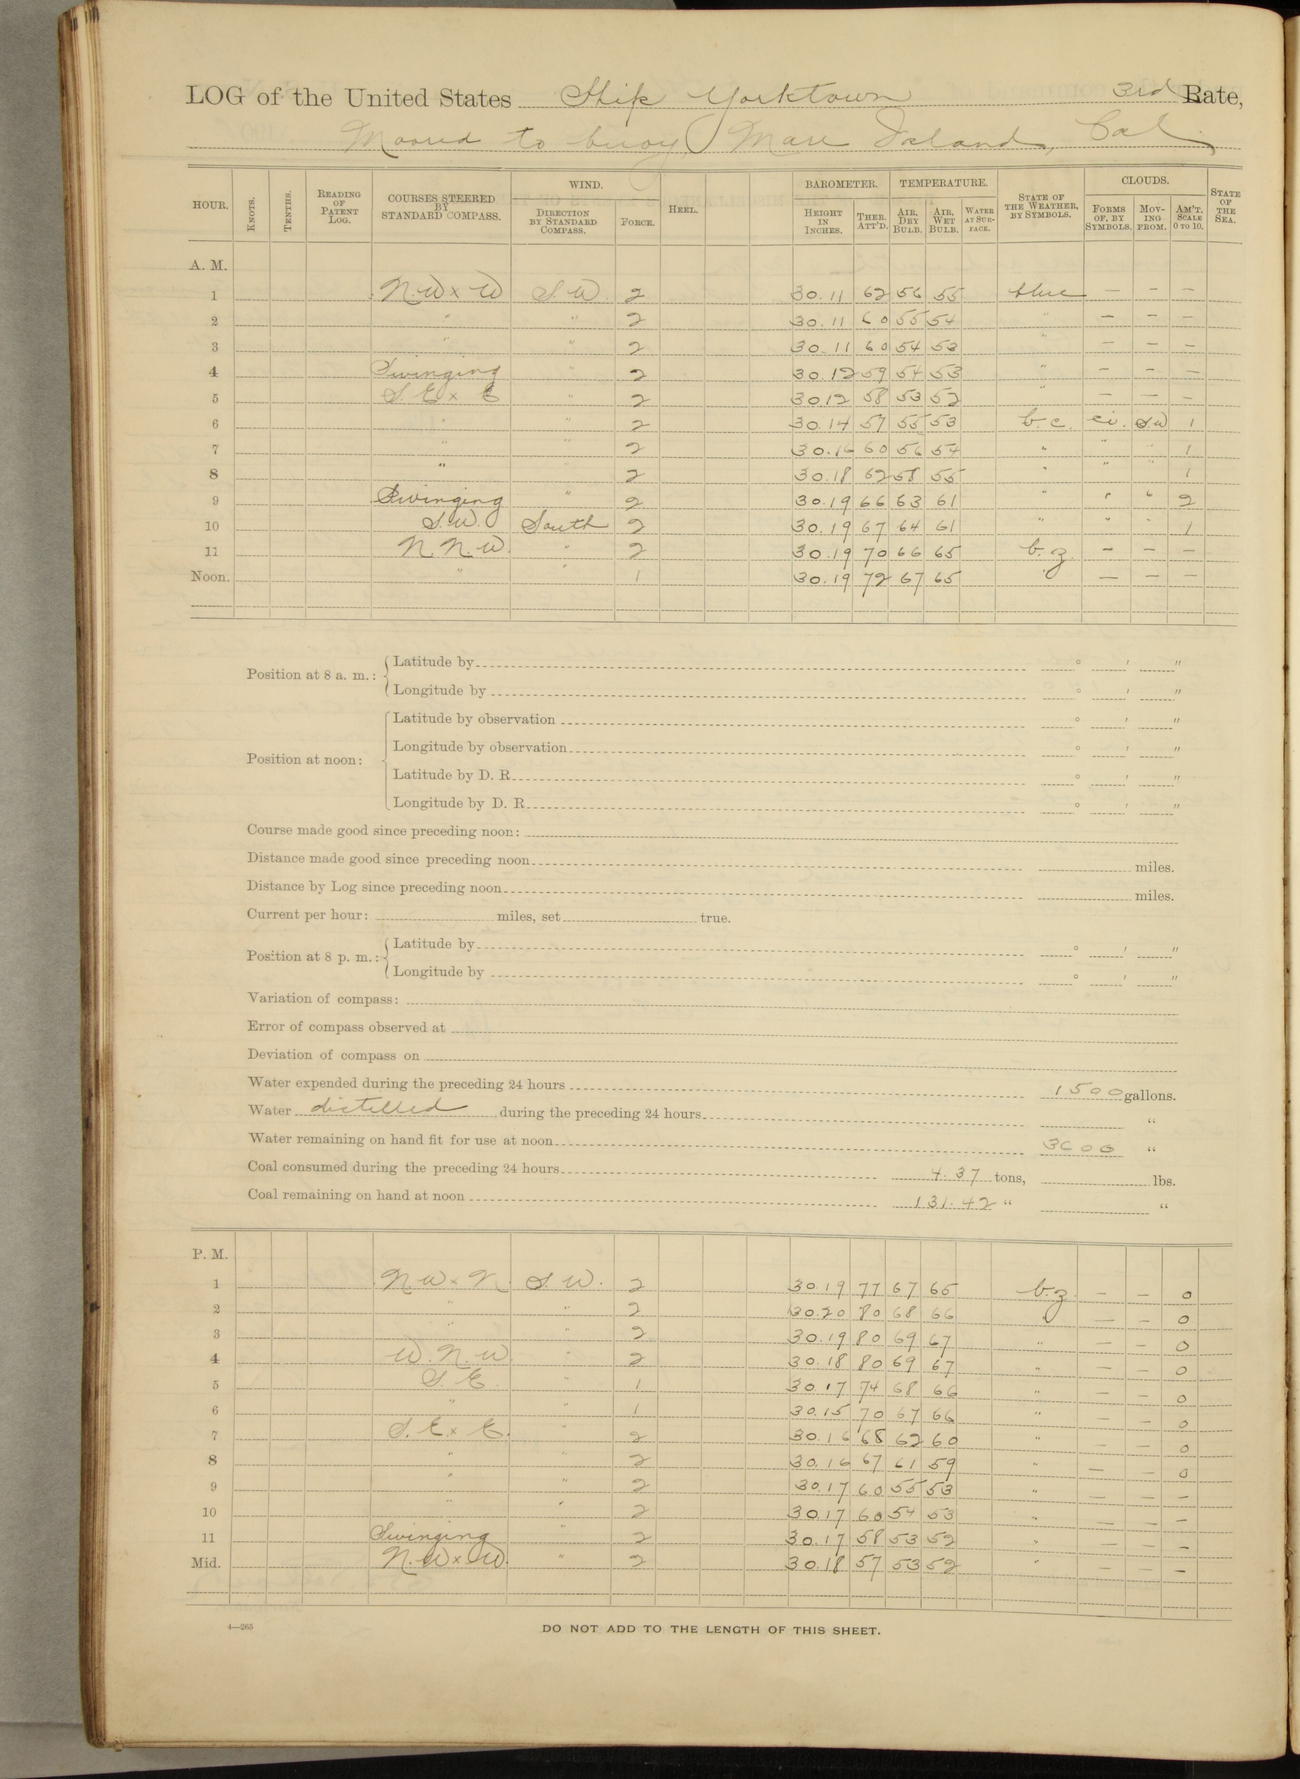 LOG of the United States Ship Yorktown 3rd Rate,
Moored to buoy, Mare Island, Cal.
HOUR. KNOTS. TENTHS. READING OF PATENT LOG. COURSES STEERED BY STANDARD COMPASS. WIND. DIRECTION BY STANDARD COMPASS. FORCE. HEEL. BAROMETER. HEIGHT IN INCHES. THER. ATT'D. TEMPERATURE. AIR, DRY BULB. AIR, WET BULB. WATER AT SURFACE. STATE OF THE WEATHER, BY SYMBOLS. CLOUDS. FORMS OF, BY SYMBOLS. MOVING FROM. AM'T. SCALE 0 TO 10. STATE OF THE SEA.
A. M.
1 N.W x W S.W. 2 30.11 62 56 55 blue — — —
2 " " 2 30.11 60 55 54 " — — —
3 " " 2 30.11 60 54 53 " — — —
4 Swinging " 2 30.12 59 54 53 " — — —
5 S E x E " 2 30.12 58 53 52 " — — —
6 " " 2 30.14 57 55 53 b.c. ci. S.W 1
7 " " 2 30.16 60 56 54 " " " 1
8 " " 2 30.18 62 58 55 " " " 1
9 Swinging " 2 30.19 66 63 61 " " " 2
10 S.W. South 2 30.19 67 64 61 " " " 1
11 N.N.W. " 2 30.19 70 66 65 b.z. — — —
Noon. " " 1 30.19 72 67 65 " — — —
Position at 8 a. m.: Latitude by ° ′ ″
Longitude by ° ′ ″
Position at noon: Latitude by observation ° ′ ″
Longitude by observation ° ′ ″
Latitude by D. R. ° ′ ″
Longitude by D. R. ° ′ ″
Course made good since preceding noon:
Distance made good since preceding noon miles.
Distance by Log since preceding noon miles.
Current per hour: miles, set true.
Position at 8 p. m.: Latitude by ° ′ ″
Longitude by ° ′ ″
Variation of compass:
Error of compass observed at
Deviation of compass on
Water expended during the preceding 24 hours 1500 gallons.
Water distilled during the preceding 24 hours "
Water remaining on hand fit for use at noon 3600 "
Coal consumed during the preceding 24 hours 4.37 tons, lbs.
Coal remaining on hand at noon 131.42 " "
P. M.
1 N W x N. S.W. 2 30.19 77 67 65 b.z — — 0
2 " " 2 30.20 80 68 66 " — — 0
3 " " 2 30.19 80 69 67 " — — 0
4 W.N.W " 2 30.18 80 69 67 " — — 0
5 S.E. " 1 30.17 74 68 66 " — — 0
6 " " 1 30.15 70 67 66 " — — 0
7 S.E x E. " 2 30.16 68 62 60 " — — 0
8 " " 2 30.16 67 61 59 " — — 0
9 " " 2 30.17 60 55 53 " — — —
10 " " 2 30.17 60 54 53 " — — —
11 Swinging " 2 30.17 58 53 52 " — — —
Mid. N.W x W. " 2 30.18 57 53 52 " — — —
4—265
DO NOT ADD TO THE LENGTH OF THIS SHEET.